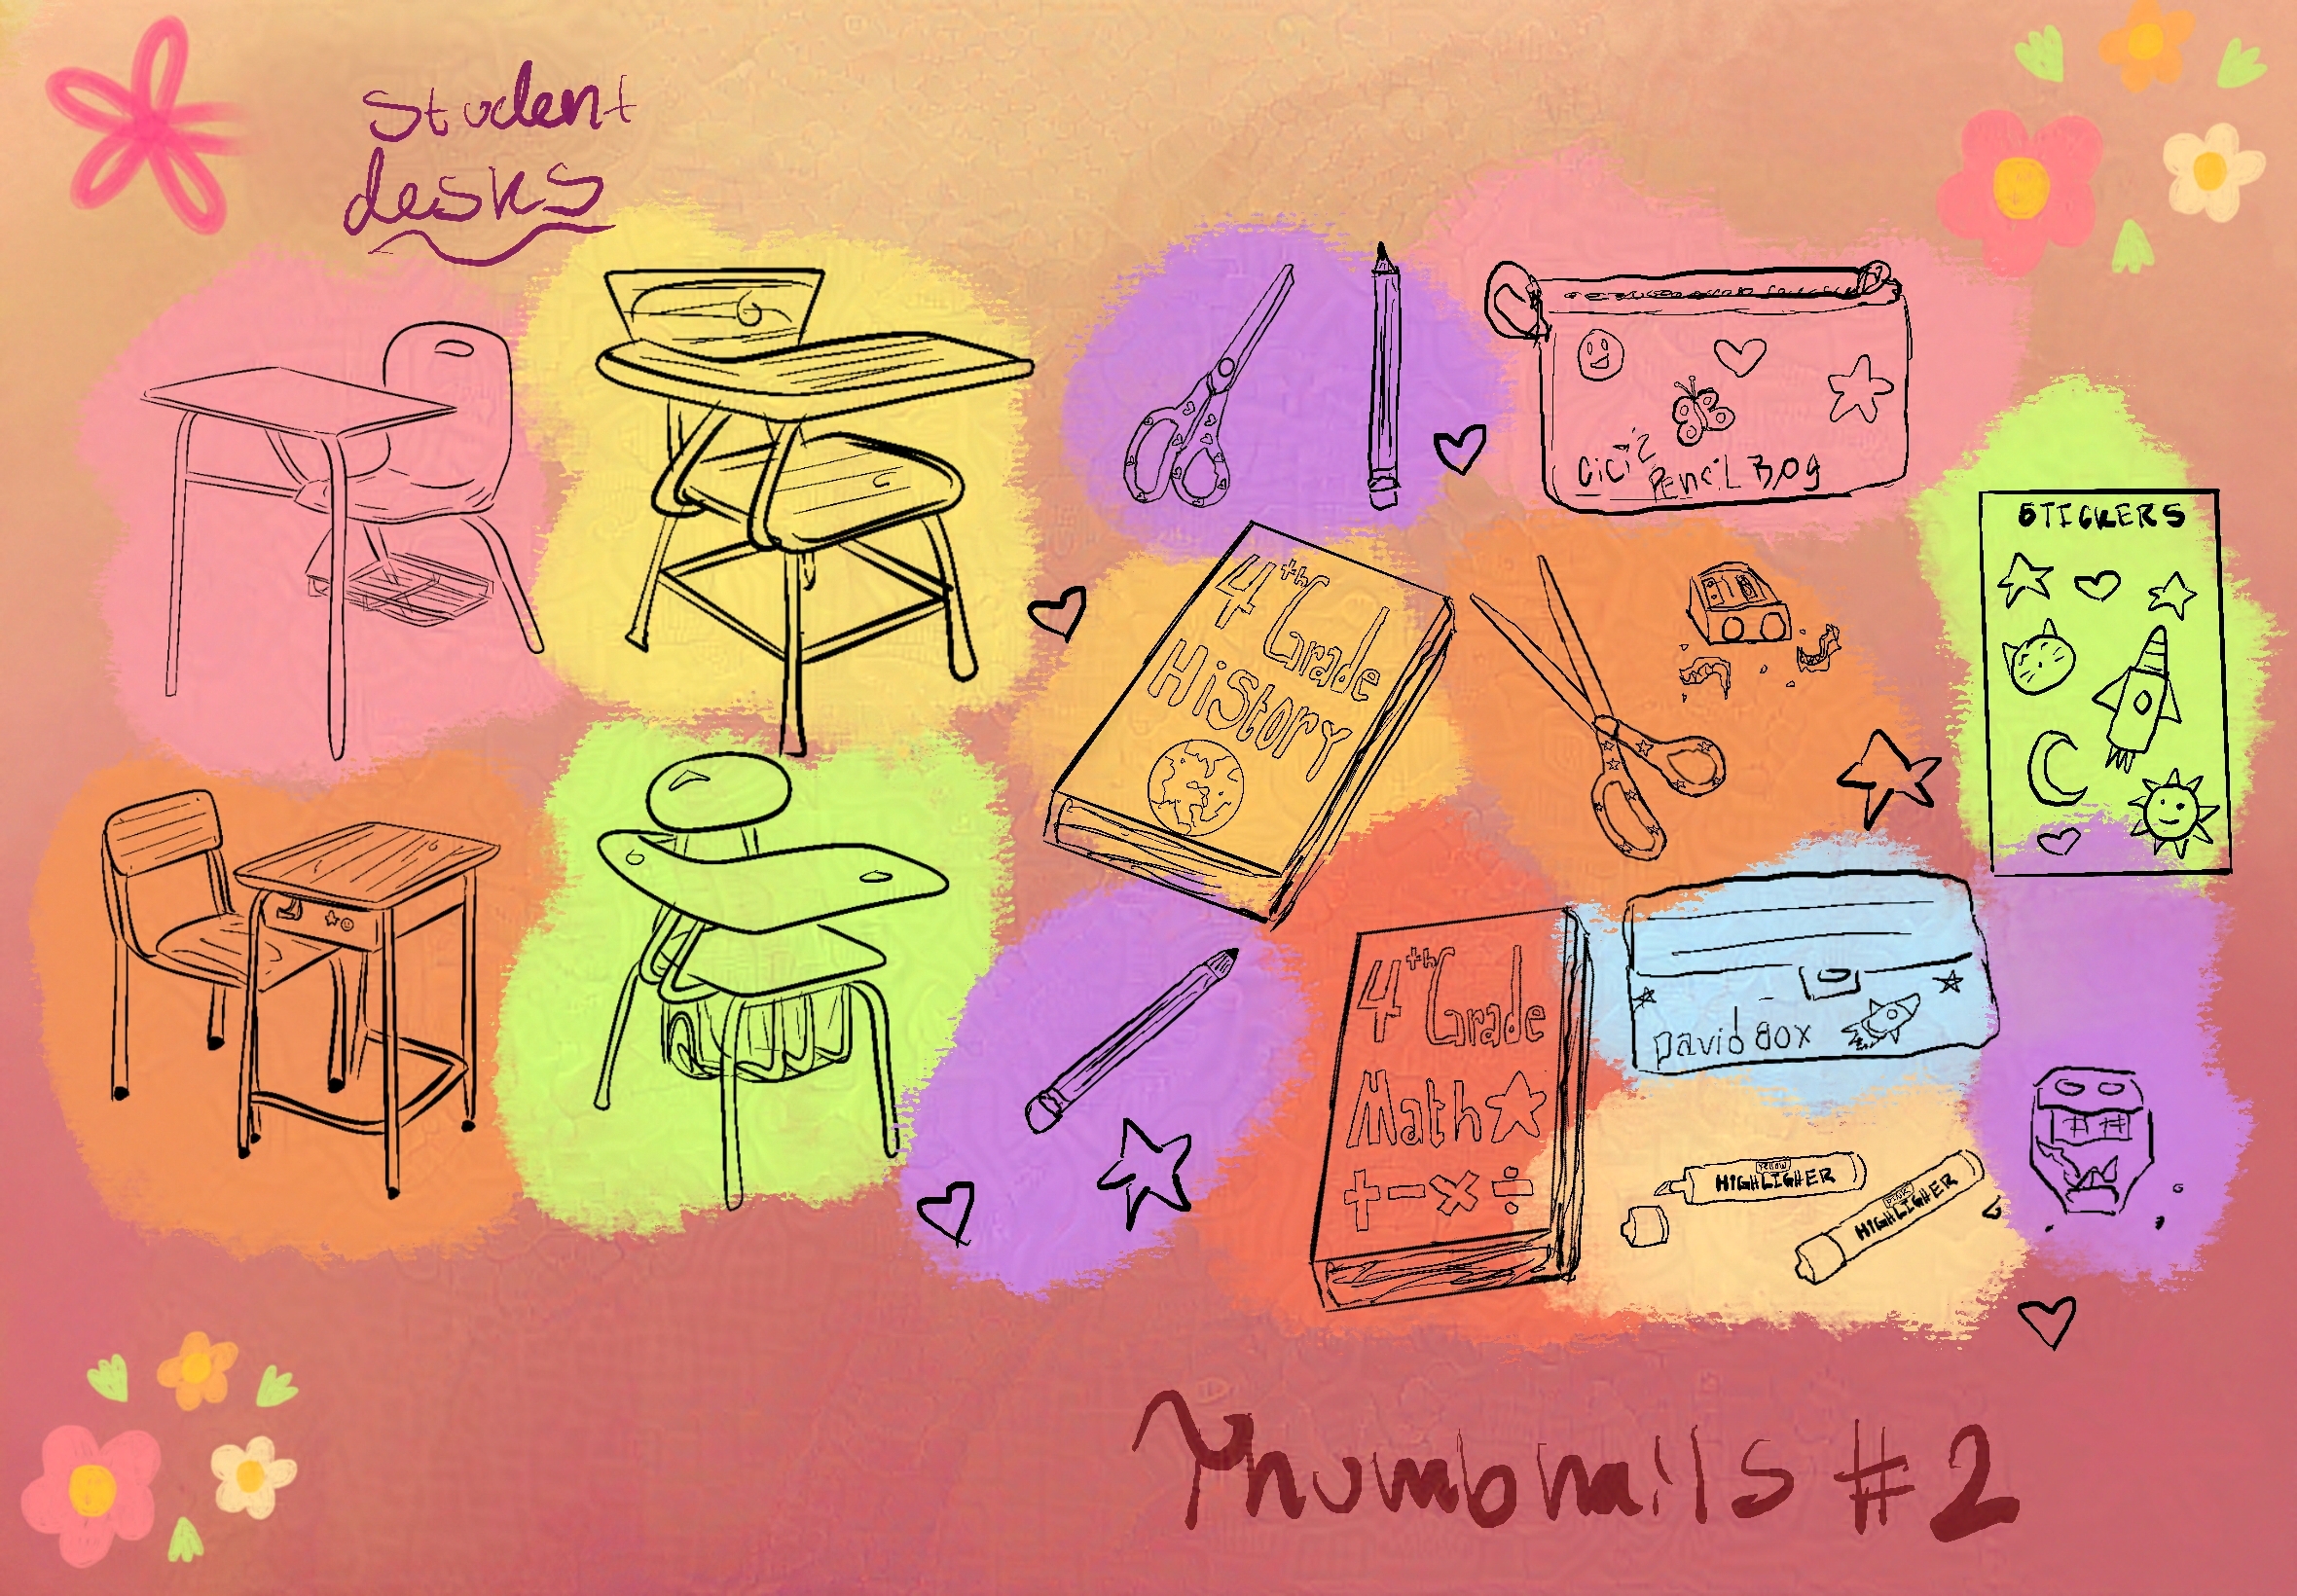 Student
desks
CiCi's
Pencil Bag
STICKERS
4th Grade
History
4th Grade
Math
+ - × ÷
David Box
Yellow
HIGHLIGHER
PINK
HIGHLIGHER
Thumbnails #2